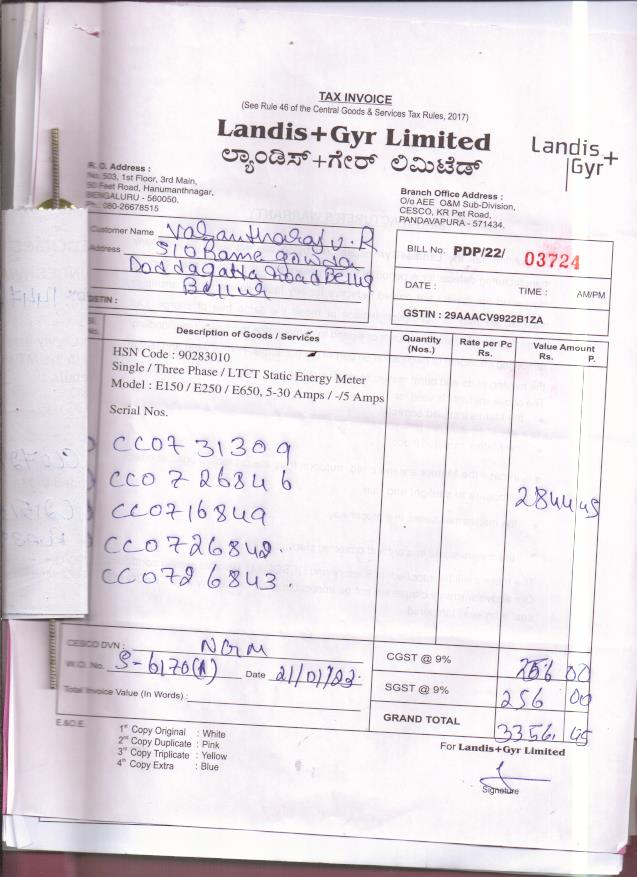 TAX INVOICE
(See Rule 46 of the Central Goods & Services Tax Rules, 2017)
Landis+Gyr Limited
ಲ್ಯಾಂಡಿಸ್+ಗೇರ್ ಲಿಮಿಟೆಡ್
Landis+
Gyr
R. O. Address :
No. 503, 1st Floor, 3rd Main,
50 Feet Road, Hanumanthnagar,
BENGALURU - 560050.
Ph. 080-26678515
Branch Office Address :
O/o AEE O&M Sub-Division,
CESCO, KR Pet Road,
PANDAVAPURA - 571434.
Customer Name Vasantharaj V.R
Address S/O Rame Gowda
Doddagatta Road Bellur
Bellur
GSTIN :
BILL No. PDP/22/ 03724
DATE : TIME : AM/PM
GSTIN : 29AAACV9922B1ZA
No. Description of Goods / Services Quantity (Nos.) Rate per Pc Rs. Value Amount Rs. P.
HSN Code : 90283010
Single / Three Phase / LTCT Static Energy Meter
Model : E150 / E250 / E650, 5-30 Amps / -/5 Amps
Serial Nos.
CC0731309
CC0726846
2844 45
CC0716849
CC0726842.
CC0726843.
CESCO DVN : NGM
W.O. No. S-6170(A) Date 21/01/23.
Total Invoice Value (In Words) :
CGST @ 9% 256 00
SGST @ 9% 256 00
GRAND TOTAL 3356. 45
E.&O.E.
1st Copy Original : White
2nd Copy Duplicate : Pink
3rd Copy Triplicate : Yellow
4th Copy Extra : Blue
For Landis+Gyr Limited
Signature